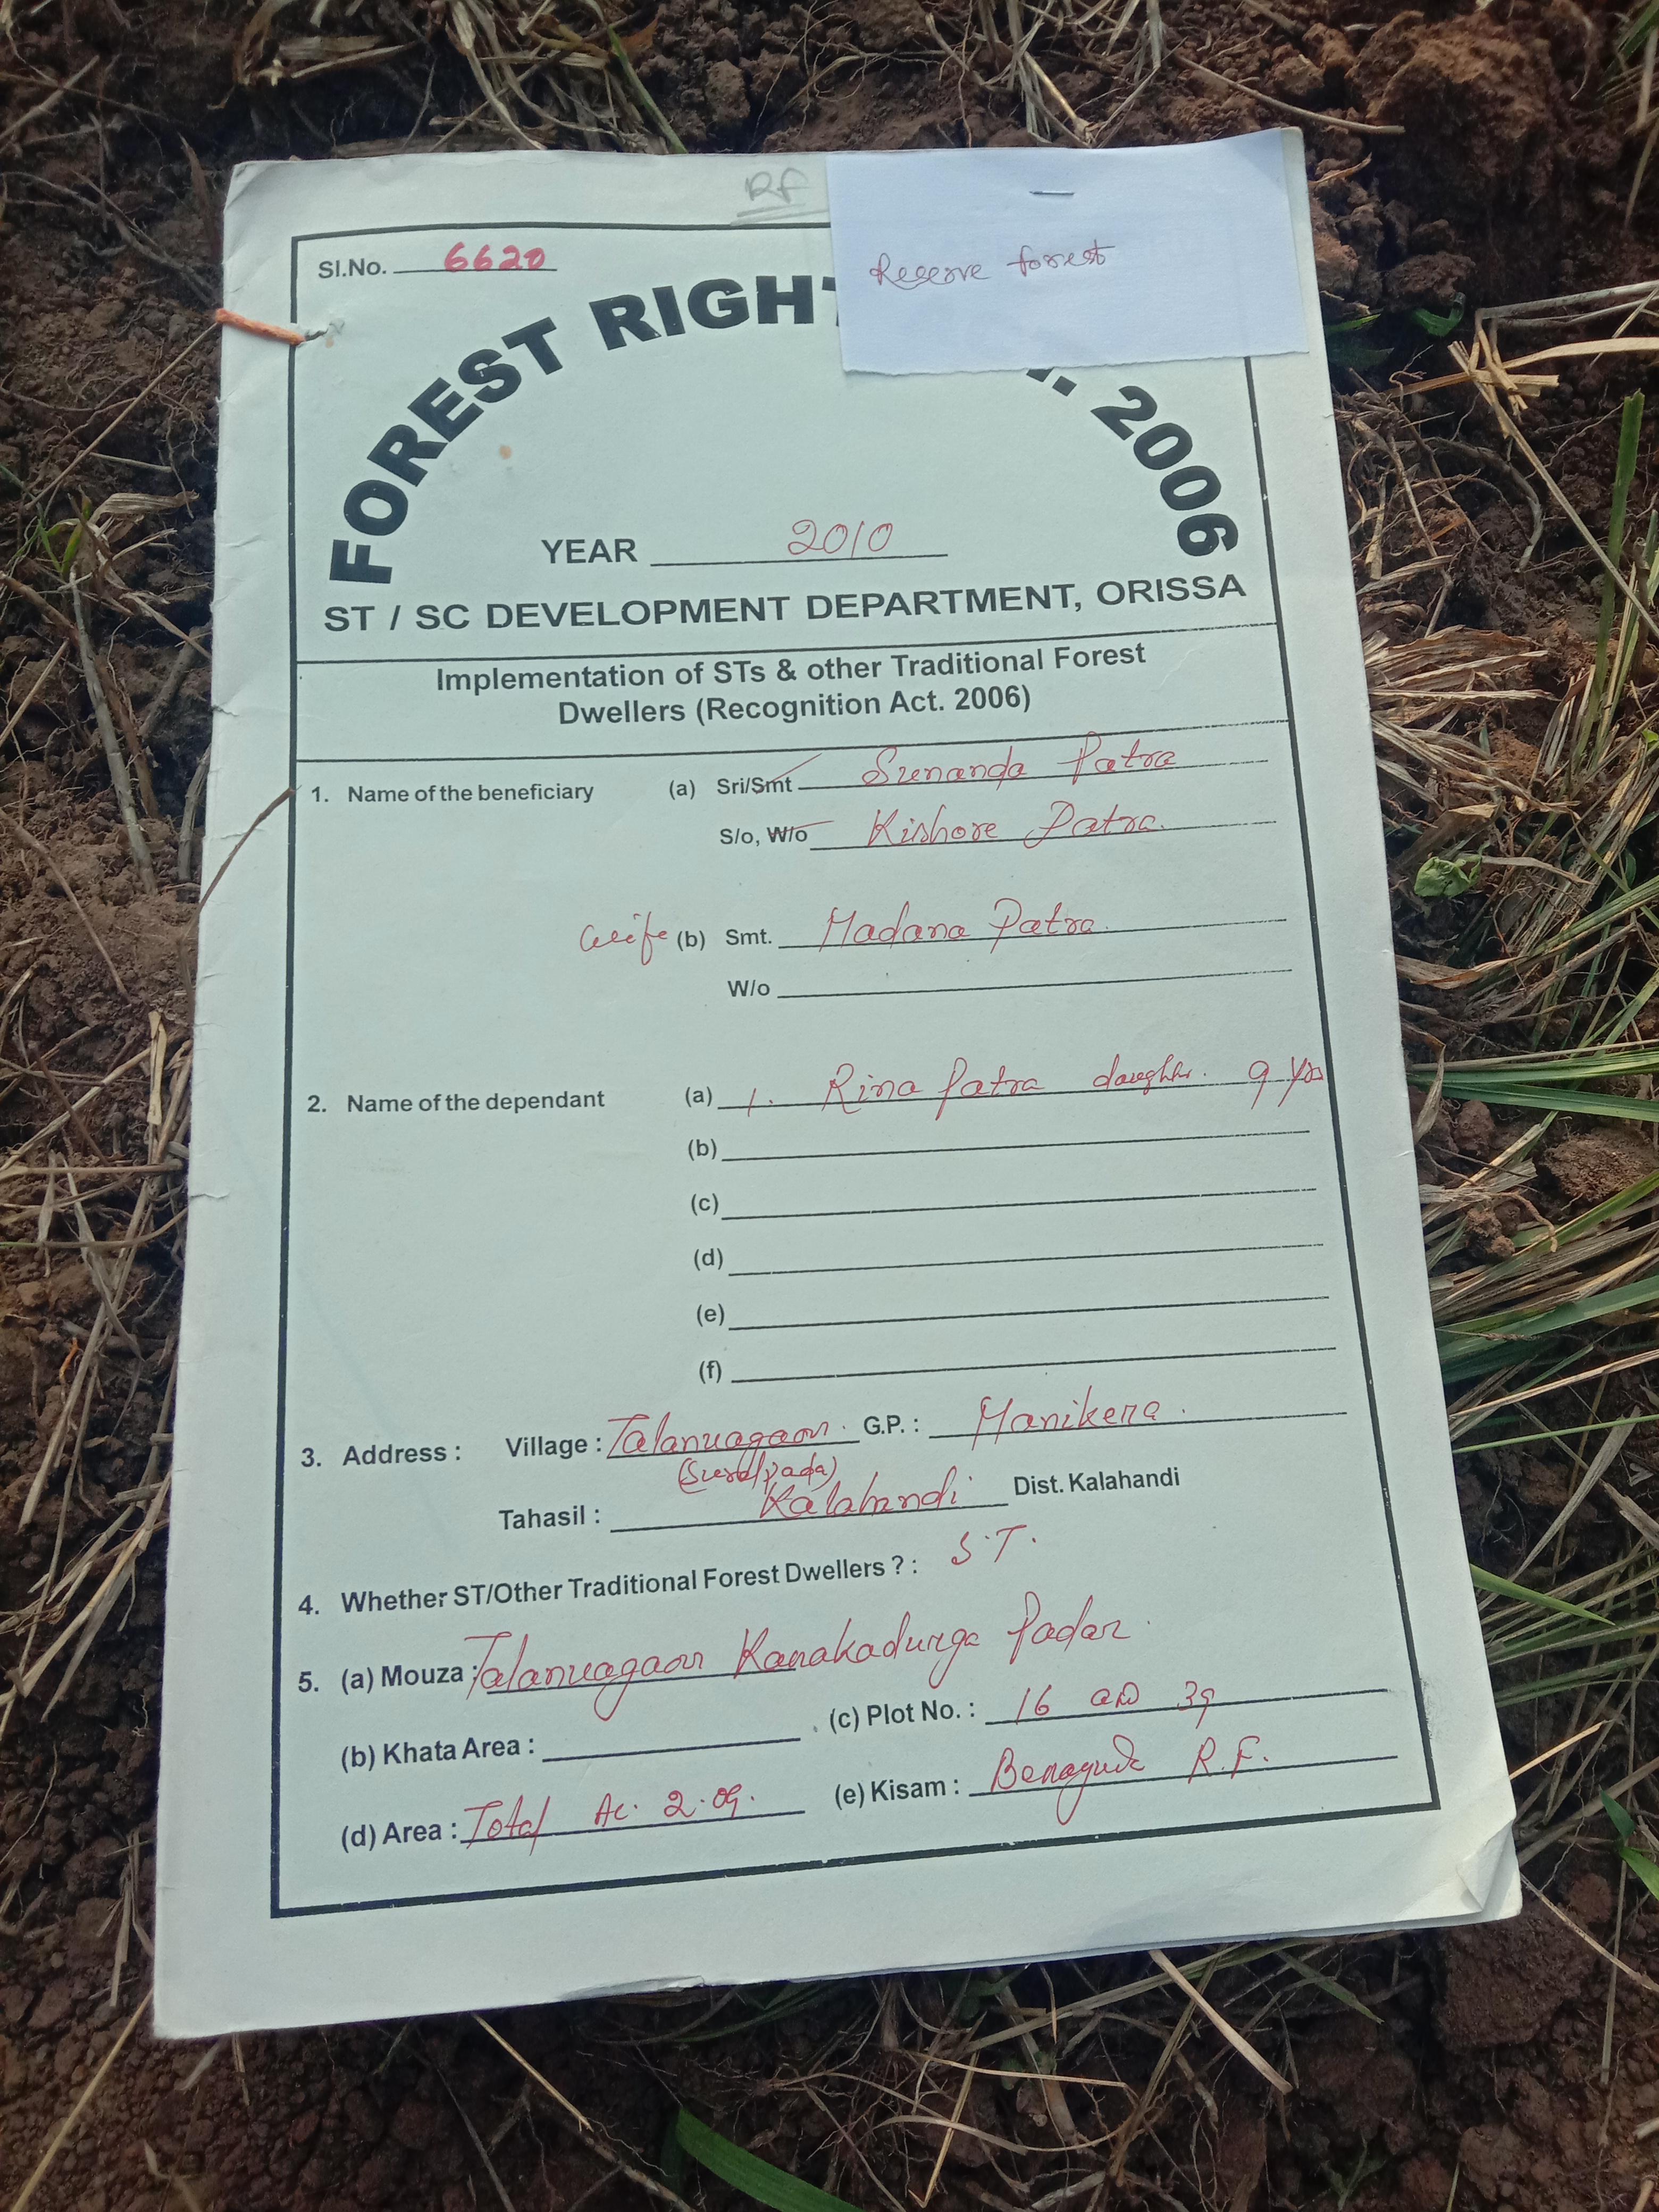 RF
Reserve forest
Sl.No. 6620
FOREST RIGHT . 2006
YEAR 2010
ST / SC DEVELOPMENT DEPARTMENT, ORISSA
Implementation of STs & other Traditional Forest
Dwellers (Recognition Act. 2006)
1. Name of the beneficiary (a) Sri/Smt Sunanda Patra
S/o, W/o Kishore Patra.
wife (b) Smt. Madana Patra.
W/o
2. Name of the dependant (a) 1. Rina Patra daughter. 9 yrs
(b)
(c)
(d)
(e)
(f)
3. Address : Village : Talanuagaon. G.P. : Manikera.
Tahasil : Kalahandi Dist. Kalahandi
4. Whether ST/Other Traditional Forest Dwellers ? : S.T.
5. (a) Mouza : Talanuagaon Kanakadurga Padar.
(b) Khata Area : (c) Plot No. : 16 and 39
(d) Area : Total Ac. 2.09. (e) Kisam : R.F.